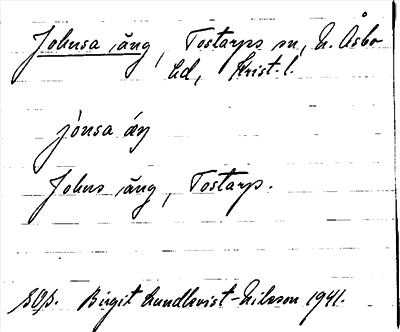 Johnsa äng, Tostarps sn, N. Åsbo
hd, Krist. l.
jònsa ǽŋ
Johns äng, Tostarp.
Birgit Lundkvist-Nilsson 1941.